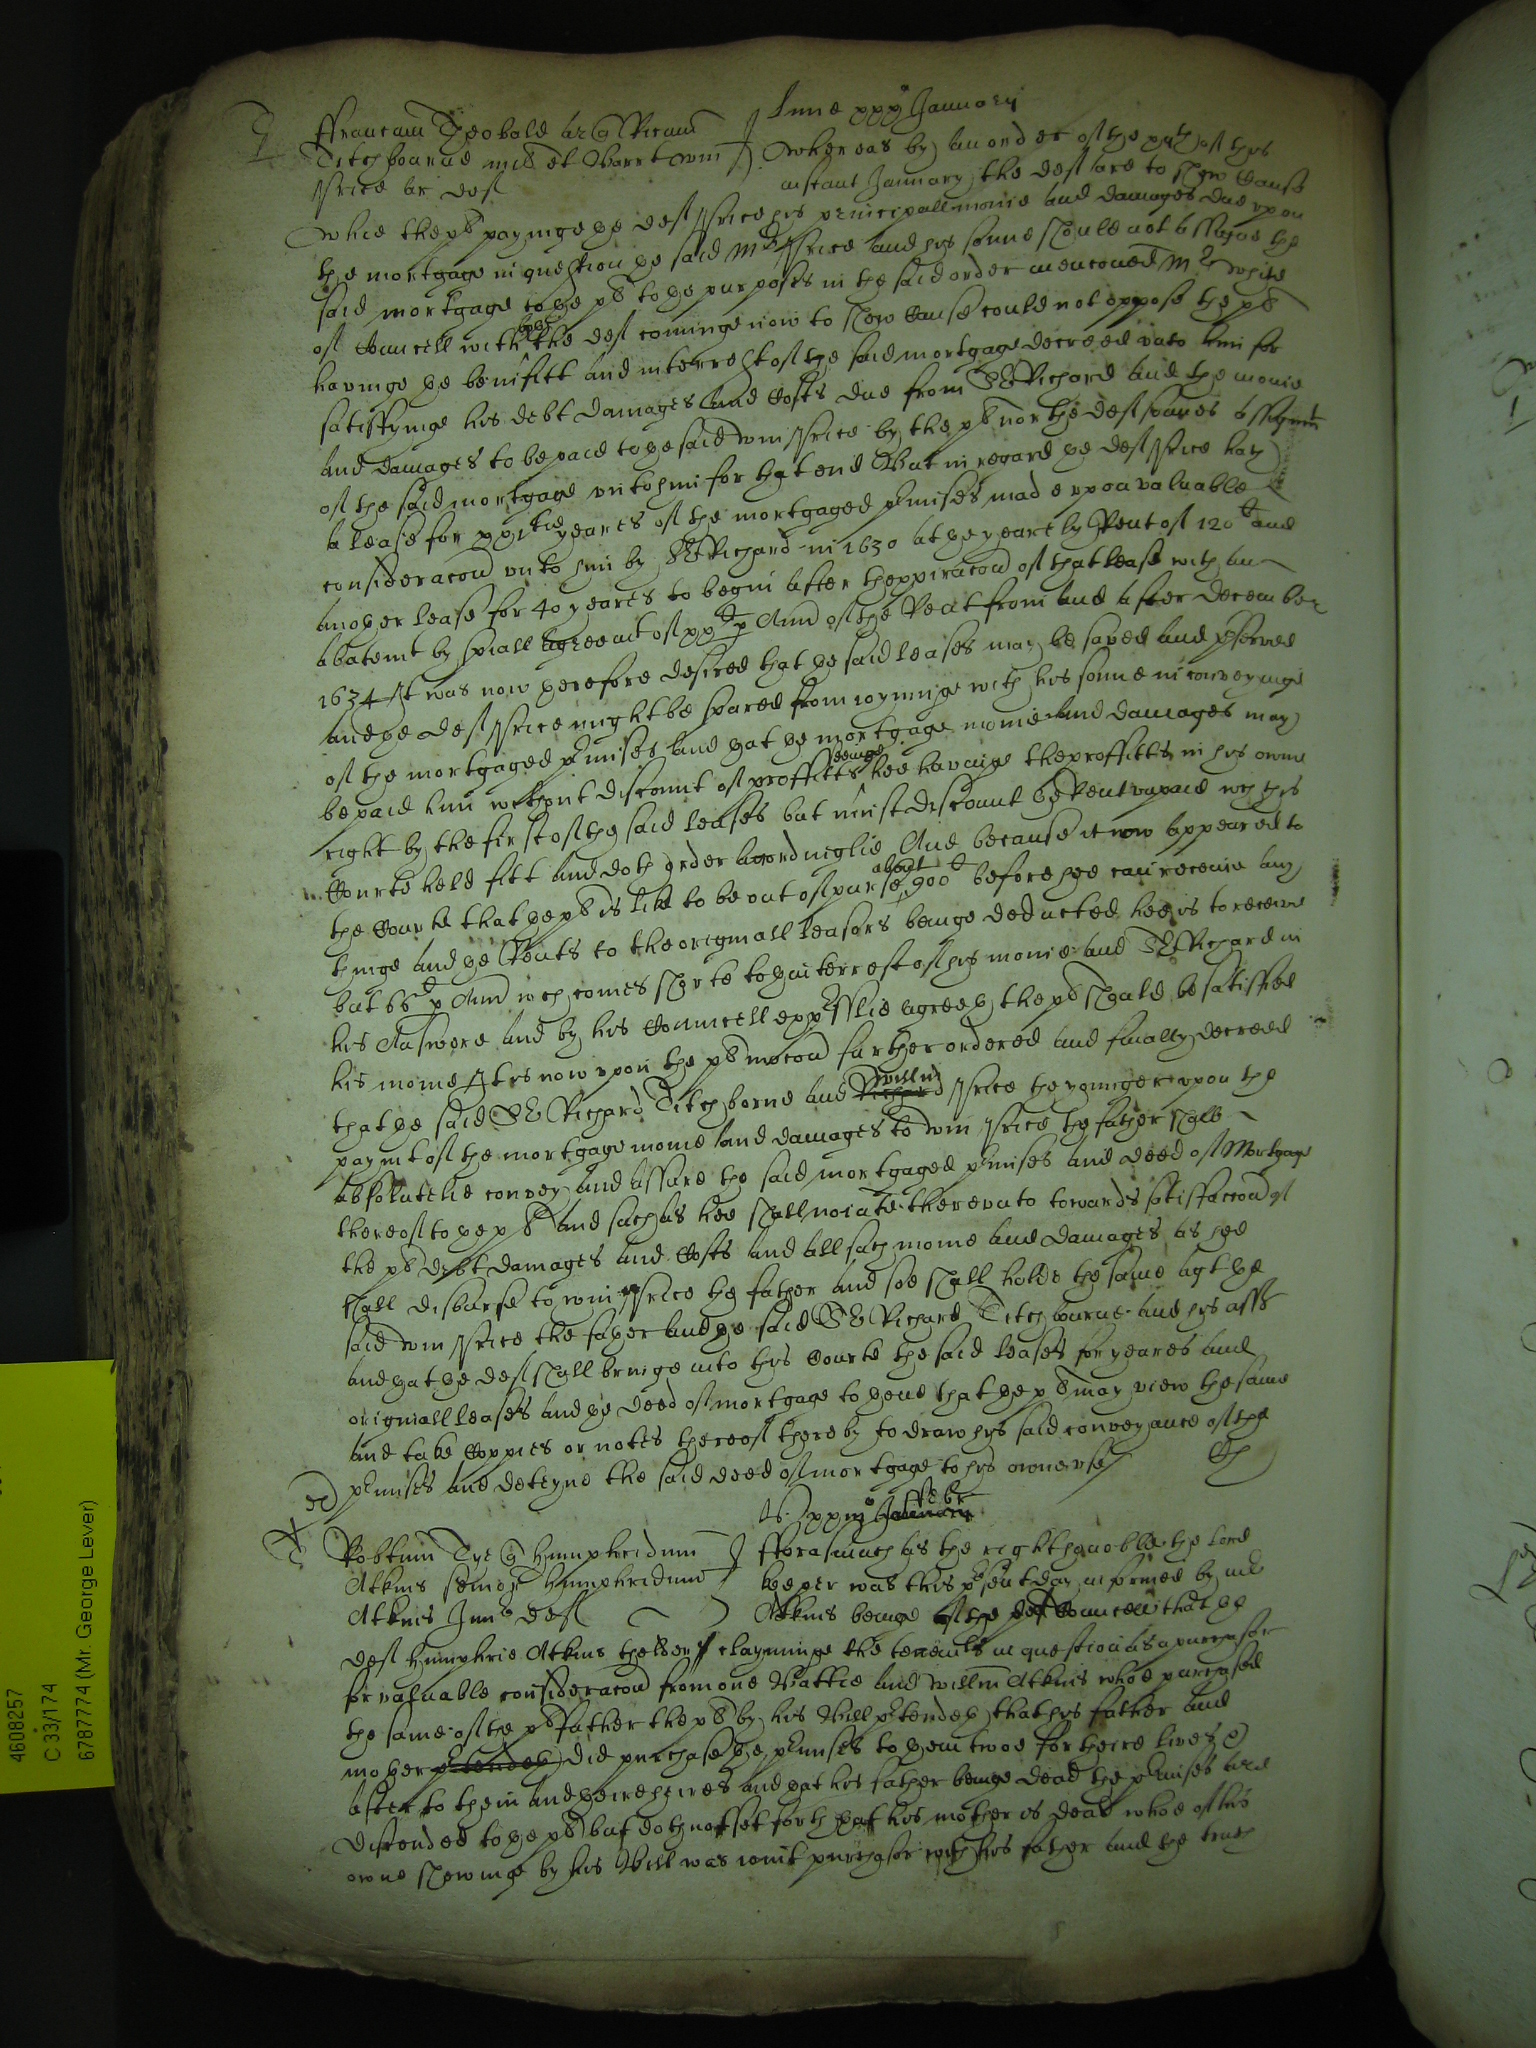 Lune xxxº January
ffranciscum Theobald ar Q Ricum
Titchbourne milt et Barrt Wm
Price ar def
Whereas by an order of the xxth of this
instant January the def are to shew Cause
Whie the plt payinge ye def Price his principall monie and damages due vpon
the mortgage in question ye said Mr Price and his sonne should not assigne the
said mortgage to ye plt to ye purposes in the said order mencioned Mr White
of Councell with the def cominge now to shew Cause could not oppose the plt
havinge ye benifitt and interrest of the said mortgage decreed vnto him for
satisfyinge his debt damages and Costs due from Sr Richard and the monie
and damages to be paid to ye said Wm Price by the plt nor the def sonnes assignmt
of the said mortgage vnto him for that end But in regard ye def Price hath
a lease for yeares of the mortgaged pmises made vpon valuable
consideracon vnto him by Sr Richard in 1630 at ye yearely Rent of 120li and
another lease for 40 yeares to begin after thexpiracon of that lease with an
abatemt by speciall agreemt of xxli p Ann of the Rent from and after December
1634 It was now herefore desired that ye said leases may be saved and pserved
and ye def Price might be spared from ioyninge with his sonne in conveyinge
of the mortgaged pmises and yat ye mortgage monie and damages may
be paid him without discount of proffitts seeinge hee havinge the proffitts in his owne
right by the first of the said leases but must discount ye Rent vnpaid wch this
Courte held fitt and doth order accordinglie And because it now appeared to
the Courte that ye plt is like to be out of purse about 900li before hee can receive any
thinge and ye Rents to the originall leasors beinge deducted hee is to receive
but 66li p Ann wch comes shorte to ye interrest of his monie and Sr Richard in
his Answere and by his Councell expresslie agreeth the plt should be satisfied
his monie It is now vpon the plt mocon further ordered and finally decreed
that ye said Sr Richard Titchborne and Richard Willm Price the younger vpon the
paymt of the mortgage monie and damages to Wm Price the father shall
absolutelie convey and assure the said mortgaged pmises and deed of Mortgage
thereof to ye plt and such as hee shall noïate therevnto towards satisfaccon of
the plt debt damages and Costs and all such monie and damages as hee
shall disburse to Wm Price the father and soe shall holde the same agt ye
said Wm Price the father and ye said Sr Richard Titchbourne and his asss
and yat ye def shall bringe into this Courte the said leases for yeares and
originall leases and ye deed of mortgage to yend that ye plt may view the same
and take Coppies or notes thereof thereby to draw his said conveyance of the
pmises and deteyne the said deed of mortgage to his owne vse
xxiijº January ffebr
Robtum Tyt Q Humphridum
Atkins senior Humphridum
Atkins Junr def
fforasmuch as the right honoble the Lord
Keeper was this psent day informed by mr
Atkins beinge of the def Councell that ye
def Humphrie Atkins thelder clayminge the tenemts in question as a purchaser
for valuable consideracon from one Battie and Willm Atkins whoe purchased
the same of the plt father the plt by his Bill ptendeth that his father and
mother ptendeth did purchase ye pmises to them twoe for theire lives &
after to them and theire heires and yat his father beinge dead the pmises are
discended to ye plt but doth not set forth yat his mother is dead whoe of his
owne shewinge by his Bill was ioint purchasor with his father and the truth
4608257
C 33/174
67877774 (Mr. George Lever)